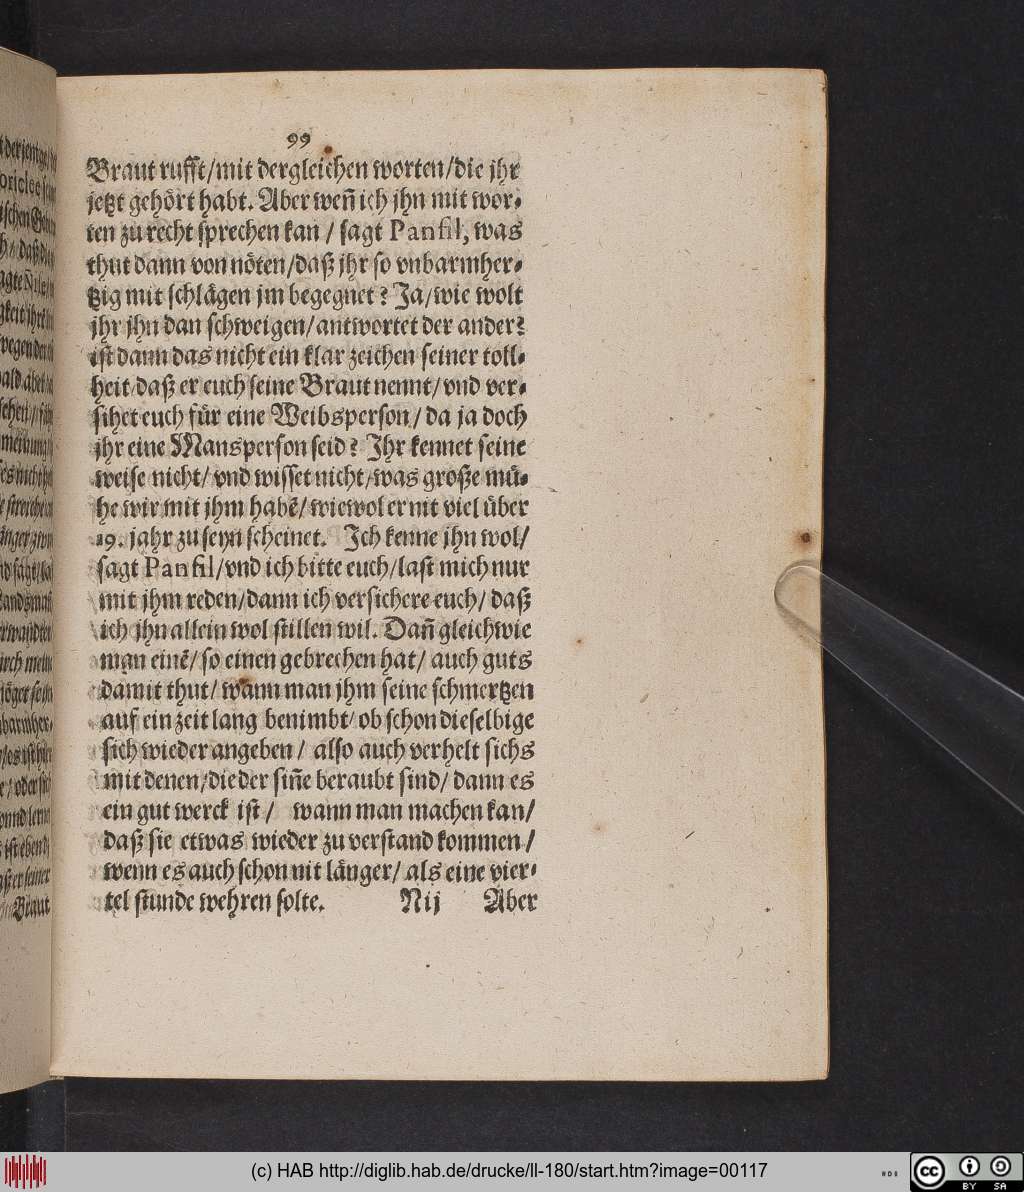 99
Braut rufft/mit dergleichen worten/die jhr
jetzt gehört habt. Aber weñ ich jhn mit wor-
ten zu recht sprechen kan / sagt Panfil, was
thut dann von nöten/daß jhr so vnbarmher-
tzig mit schlägen jm begegnet? Ja/wie wolt
jhr jhn dan schweigen/antwortet der ander?
ist dann das nicht ein klar zeichen seiner toll-
heit daß er euch seine Braut nennt/vnd ver-
sihet euch für eine Weibsperson/ da ja doch
jhr eine Mansperson seid? Ihr kennet seine
weise nicht/ vnd wisset nicht/was große mü-
he wir mit jhm habẽ/ wiewol er nit viel über
19. jahr zu seyn scheinet. Ich kenne jhn wol/
sagt Panfil/vnd ich bitte euch/last mich nur
mit jhm reden/dann ich versichere euch/ daß
ich jhn allein wol stillen wil. Dañ gleichwie
man einẽ/ so einen gebrechen hat/ auch guts
damit thut/ wann man jhm seine schmertzen
auf ein zeit lang benimbt/ ob schon dieselbige
sich wieder angeben / also auch verhelt sichs
mit denen/die der siñe beraubt sind/ dann es
ein gut werck ist / wann man machen kan/
daß sie etwas wieder zu verstand kommen /
wenn es auch schon nit länger/ als eine vier-
tel stunde wehren solte. Nij Aber
Braut
(c) HAB http://diglib.hab.de/drucke/ll-180/start.htm?image=00117
HAB
cc BY SA